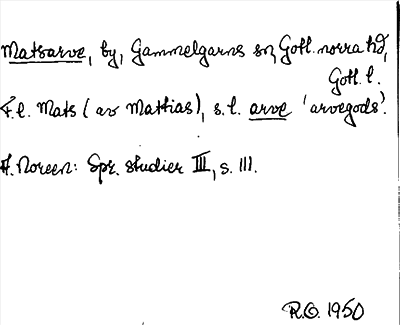 Matsarve, by, Gammelgarns sn, Gotl. norra hd,
Gotl. l.
F.l. Mats (av Mattias), s.l. arve 'arvegods'.
A. Noreen: Spr. studier III, s. 111.
R.O. 1950